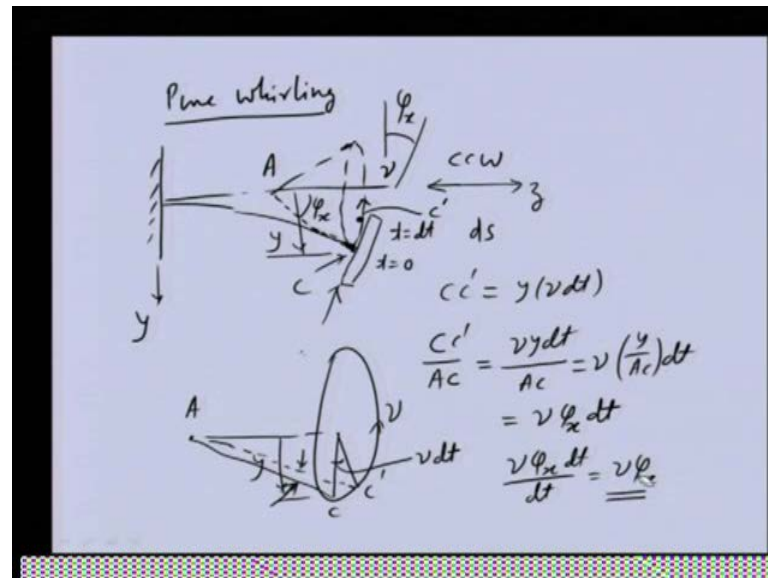 Pure whirling
φx
A
ν
ccw
z
νφx
c'
y
t=dt
ds
t=0
C
y
CC' = y(νdt)
CC'/AC = νydt/AC = ν(y/AC)dt
= νφx dt
νφx dt/dt = νφx
A
ν
y
νdt
C
C'